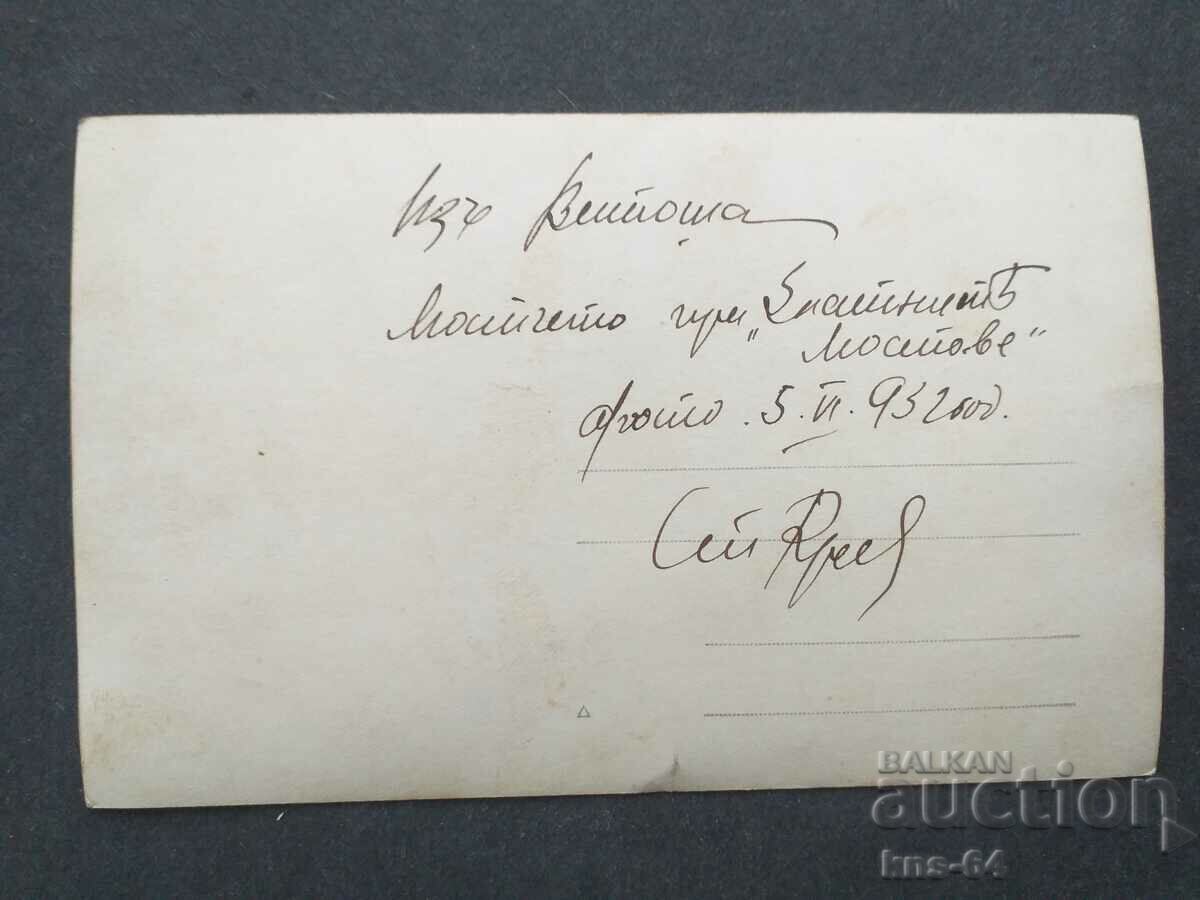 Изъ Витоша
Мостчето при „Златнитѣ
Мостове“
фото. 5. VI. 932 год.
Ст
BALKAN
auction
kns-64